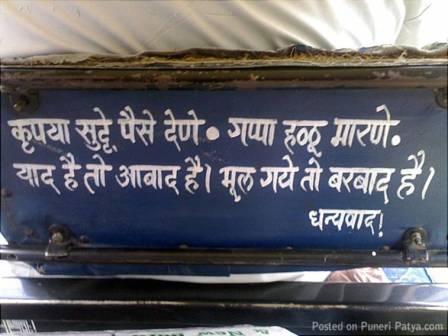 कृपया सुट्टे पैसे देणे. गप्पा हळू मारणे.
याद है तो आबाद है। मूल गये तो बरबाद है।
धन्यवाद!
Posted on Puneri Patya.com